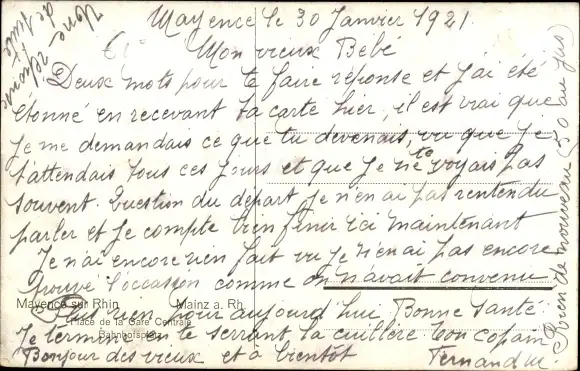 Mayence le 30 Janvier 1921.
Mon vieux Bébé
Deux mots pour te faire réponse et j'ai été
étonné en recevant ta carte hier, il est vrai que
je me demandais ce que tu devenais, vu que je
t'attendais tous ces jours et que je ne te voyais pas
souvent. Question du départ je n'en ai pas rentendu
parler et je compte bien finir ici maintenant
Je n'ai encore rien fait vu je n'en ai pas encore
trouvé l'occasion comme on n'avait convenu
Plus rien pour aujourd'hui Bonne Santé.
Je termine en te serrant la cuillère ton copain
Bonjour des vieux et à bientôt Fernand
Rien de nouveau (50 au jus)
Une réponse
de suite
Mayence sur Rhin Mainz a. Rh.
Place de la Gare Centrale
Bahnhofsplatz